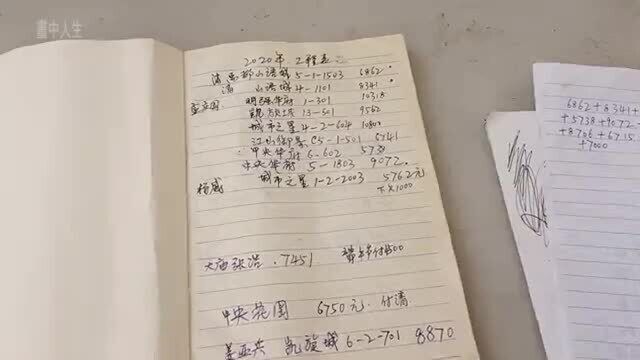 畫中人生
2020年 工程表
山语城 5-1-1503 6862
山语城 4-1101 8341
1-301 10315
13-501 9562
城市之星 4-2-604 10800
C5-1-501 6741
中央华府 6-602 5738
中央华府 5-1803 9072
杨威 城市之星 1-2-2003 5762元
下欠1000
大庙张浩 . 7451
中央花园 6750元 付清
姜亚兵 凯旋城 6-2-701 8870
6862+8341+
+5738+9072
+8706+6715
+7000